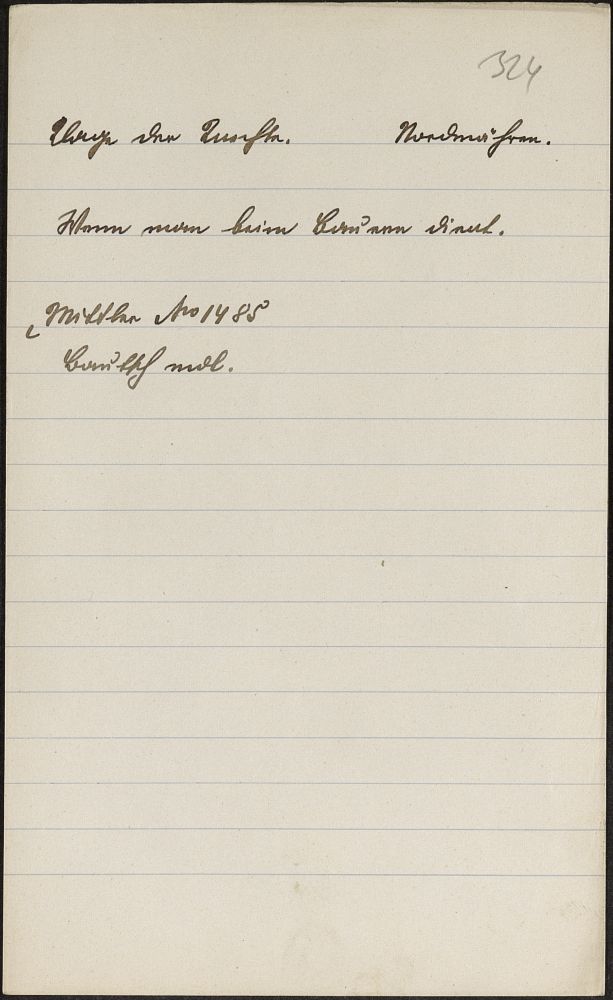 324
Klage der Knechte. Nordmähren.
Wenn man beim Bauern dient.
Mittler No 1485
Bautsch mdl.